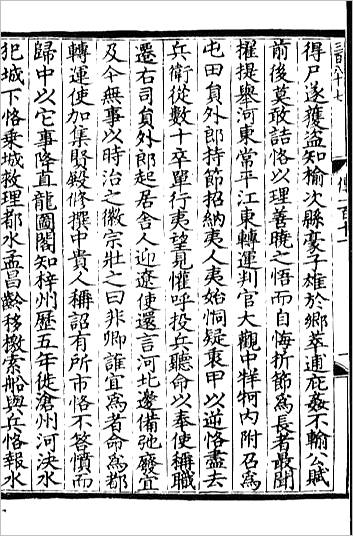 得尸遂獲盜知榆次縣豪子雄於鄉萃逋庇姦不輸公賦
前後莫敢詰恪以理善曉之悟而自悔折節爲長者最聞
擢提舉河東常平江東轉運判官大觀中牂牁內附召爲
屯田員外郎持節招納夷人夷始恫疑衷甲以逆恪盡去
兵衛從數十卒單行夷望見懽呼投兵聽命以奉使稱職
遷右司員外郎起居舍人迎遼使還言河北邊備弛廢宜
及今無事以時治之徽宗壯之曰非卿誰宜爲者命爲都
轉運使加集賢殿修撰中貴人稱詔有所市恪不答憤而
歸中以它事降直龍圖閣知梓州歷五年徙滄州河決水
犯城下恪乘城救理都水孟昌齡移檄索船與兵恪報水